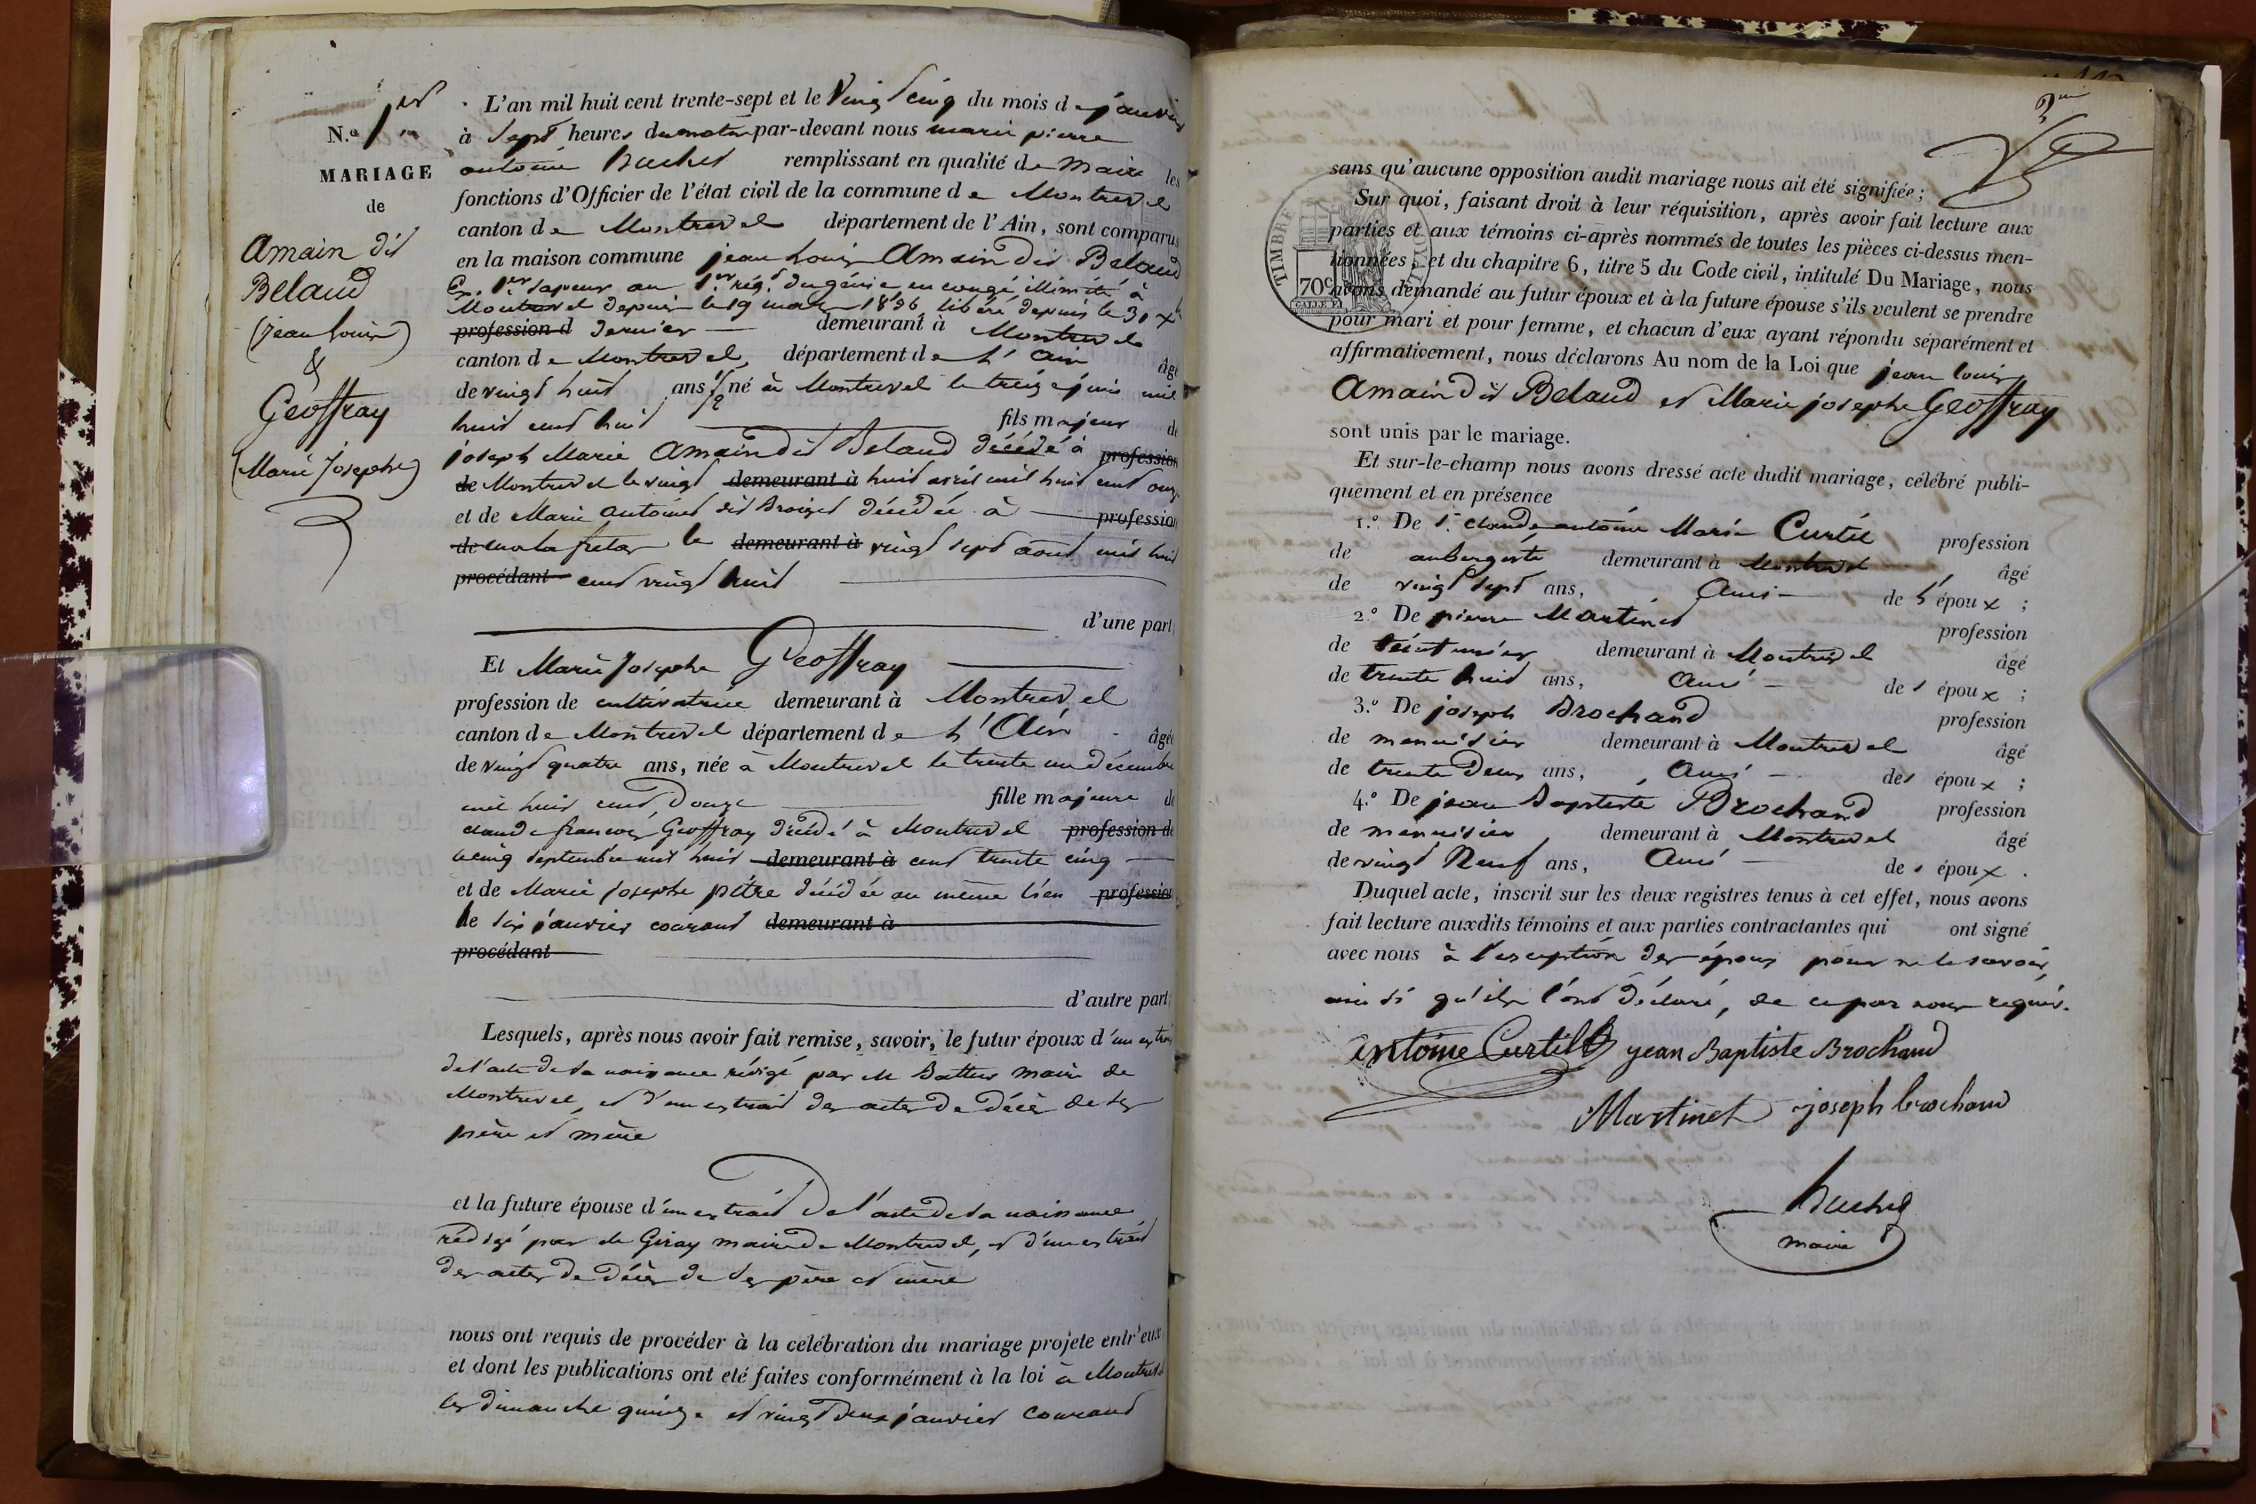 N.º 1er
MARIAGE
de
Amain dit
Belaud
(jean Louis)
&
Geoffray
(Marie Josephe)
L'an mil huit cent trente-sept et le vingt cinq du mois de janvier
à sept heures du matin par-devant nous marie pierre
antoine Buchet remplissant en qualité de Maire les
fonctions d'Officier de l'état civil de la commune de Montrevel
canton de Montrevel département de l'Ain, sont comparus
en la maison commune jean Louis Amain dit Belaud
Ex. 1er sapeur au 1er rég.t du génie en congé illimité à
Montrevel depuis le 19 mars 1836, libéré depuis le 31 Xbre
profession d dernier demeurant à Montrevel
canton de Montrevel, département de l'ain âgé
de vingt huit ans 1/2 né à Montrevel le treize juin mil
huit cent huit fils majeur de
joseph Marie Amain dit Belaud décédé à profession
de Montrevel le vingt demeurant à huit avril mil huit cent onze
et de Marie antoinet dit Broizet décédée à profession
de le demeurant à vingt sept août mil huit
procédant cent vingt huit
d'une part;
Et Marie Josephe Geoffray
profession de cultivatrice demeurant à Montrevel
canton de Montrevel département de l'Ain âgée
de vingt quatre ans, née à Montrevel le trente un décembre
mil huit cent douze fille majeure de
claude françois Geoffray décédé à Montrevel profession de
le cinq septembre mil huit demeurant à cent trente cinq
et de Marie Josephe pitre décédée au même lieu profession
le six janvier courant demeurant à
procédant
d'autre part;
Lesquels, après nous avoir fait remise, savoir, le futur époux d'un extrait
de l'acte de sa naissance rédigé par M. maire de
Montrevel, et d'un extrait des actes de décès de ses
père et mère
et la future épouse d'un extrait de l'acte de sa naissance
rédigé par M. Giray maire de Montrevel, et d'un extrait
des actes de décès de ses père et mère
nous ont requis de procéder à la célébration du mariage projeté entr'eux
et dont les publications ont été faites conformément à la loi à Montrevel
les dimanche quinze et vingt deux janvier courant
2me
TIMBRE ROYAL
70c
sans qu'aucune opposition audit mariage nous ait été signifiée;
Sur quoi, faisant droit à leur réquisition, après avoir fait lecture aux
parties et aux témoins ci-après nommés de toutes les pièces ci-dessus men-
tionnées, et du chapitre 6, titre 5 du Code civil, intitulé Du Mariage, nous
avons demandé au futur époux et à la future épouse s'ils veulent se prendre
pour mari et pour femme, et chacun d'eux ayant répondu séparément et
affirmativement, nous déclarons Au nom de la Loi que jean louis
Amain dit Belaud et Marie josephe Geoffray
sont unis par le mariage.
Et sur-le-champ nous avons dressé acte dudit mariage, célébré publi-
quement et en présence
1.º De Sr claude antoine Marie Curtil profession
de aubergiste demeurant à Montrevel âgé
de vingt sept ans, Ami de l'époux ;
2.º De pierre Martinet profession
de teinturier demeurant à Montrevel âgé
de trente huit ans, Ami des époux ;
3.º De joseph Brochand profession
de menuisier demeurant à Montrevel âgé
de trente deux ans, Ami des époux ;
4.º De jean baptiste Brochand profession
de menuisier demeurant à Montrevel âgé
de vingt Neuf ans, Ami des époux .
Duquel acte, inscrit sur les deux registres tenus à cet effet, nous avons
fait lecture auxdits témoins et aux parties contractantes qui ont signé
avec nous à l'exception des époux pour ne le savoir
ainsi qu'ils l'ont déclaré, de ce par nous requis.
antoine Curtil jean Baptiste Brochand
Martinet joseph brochand
Buchet
maire